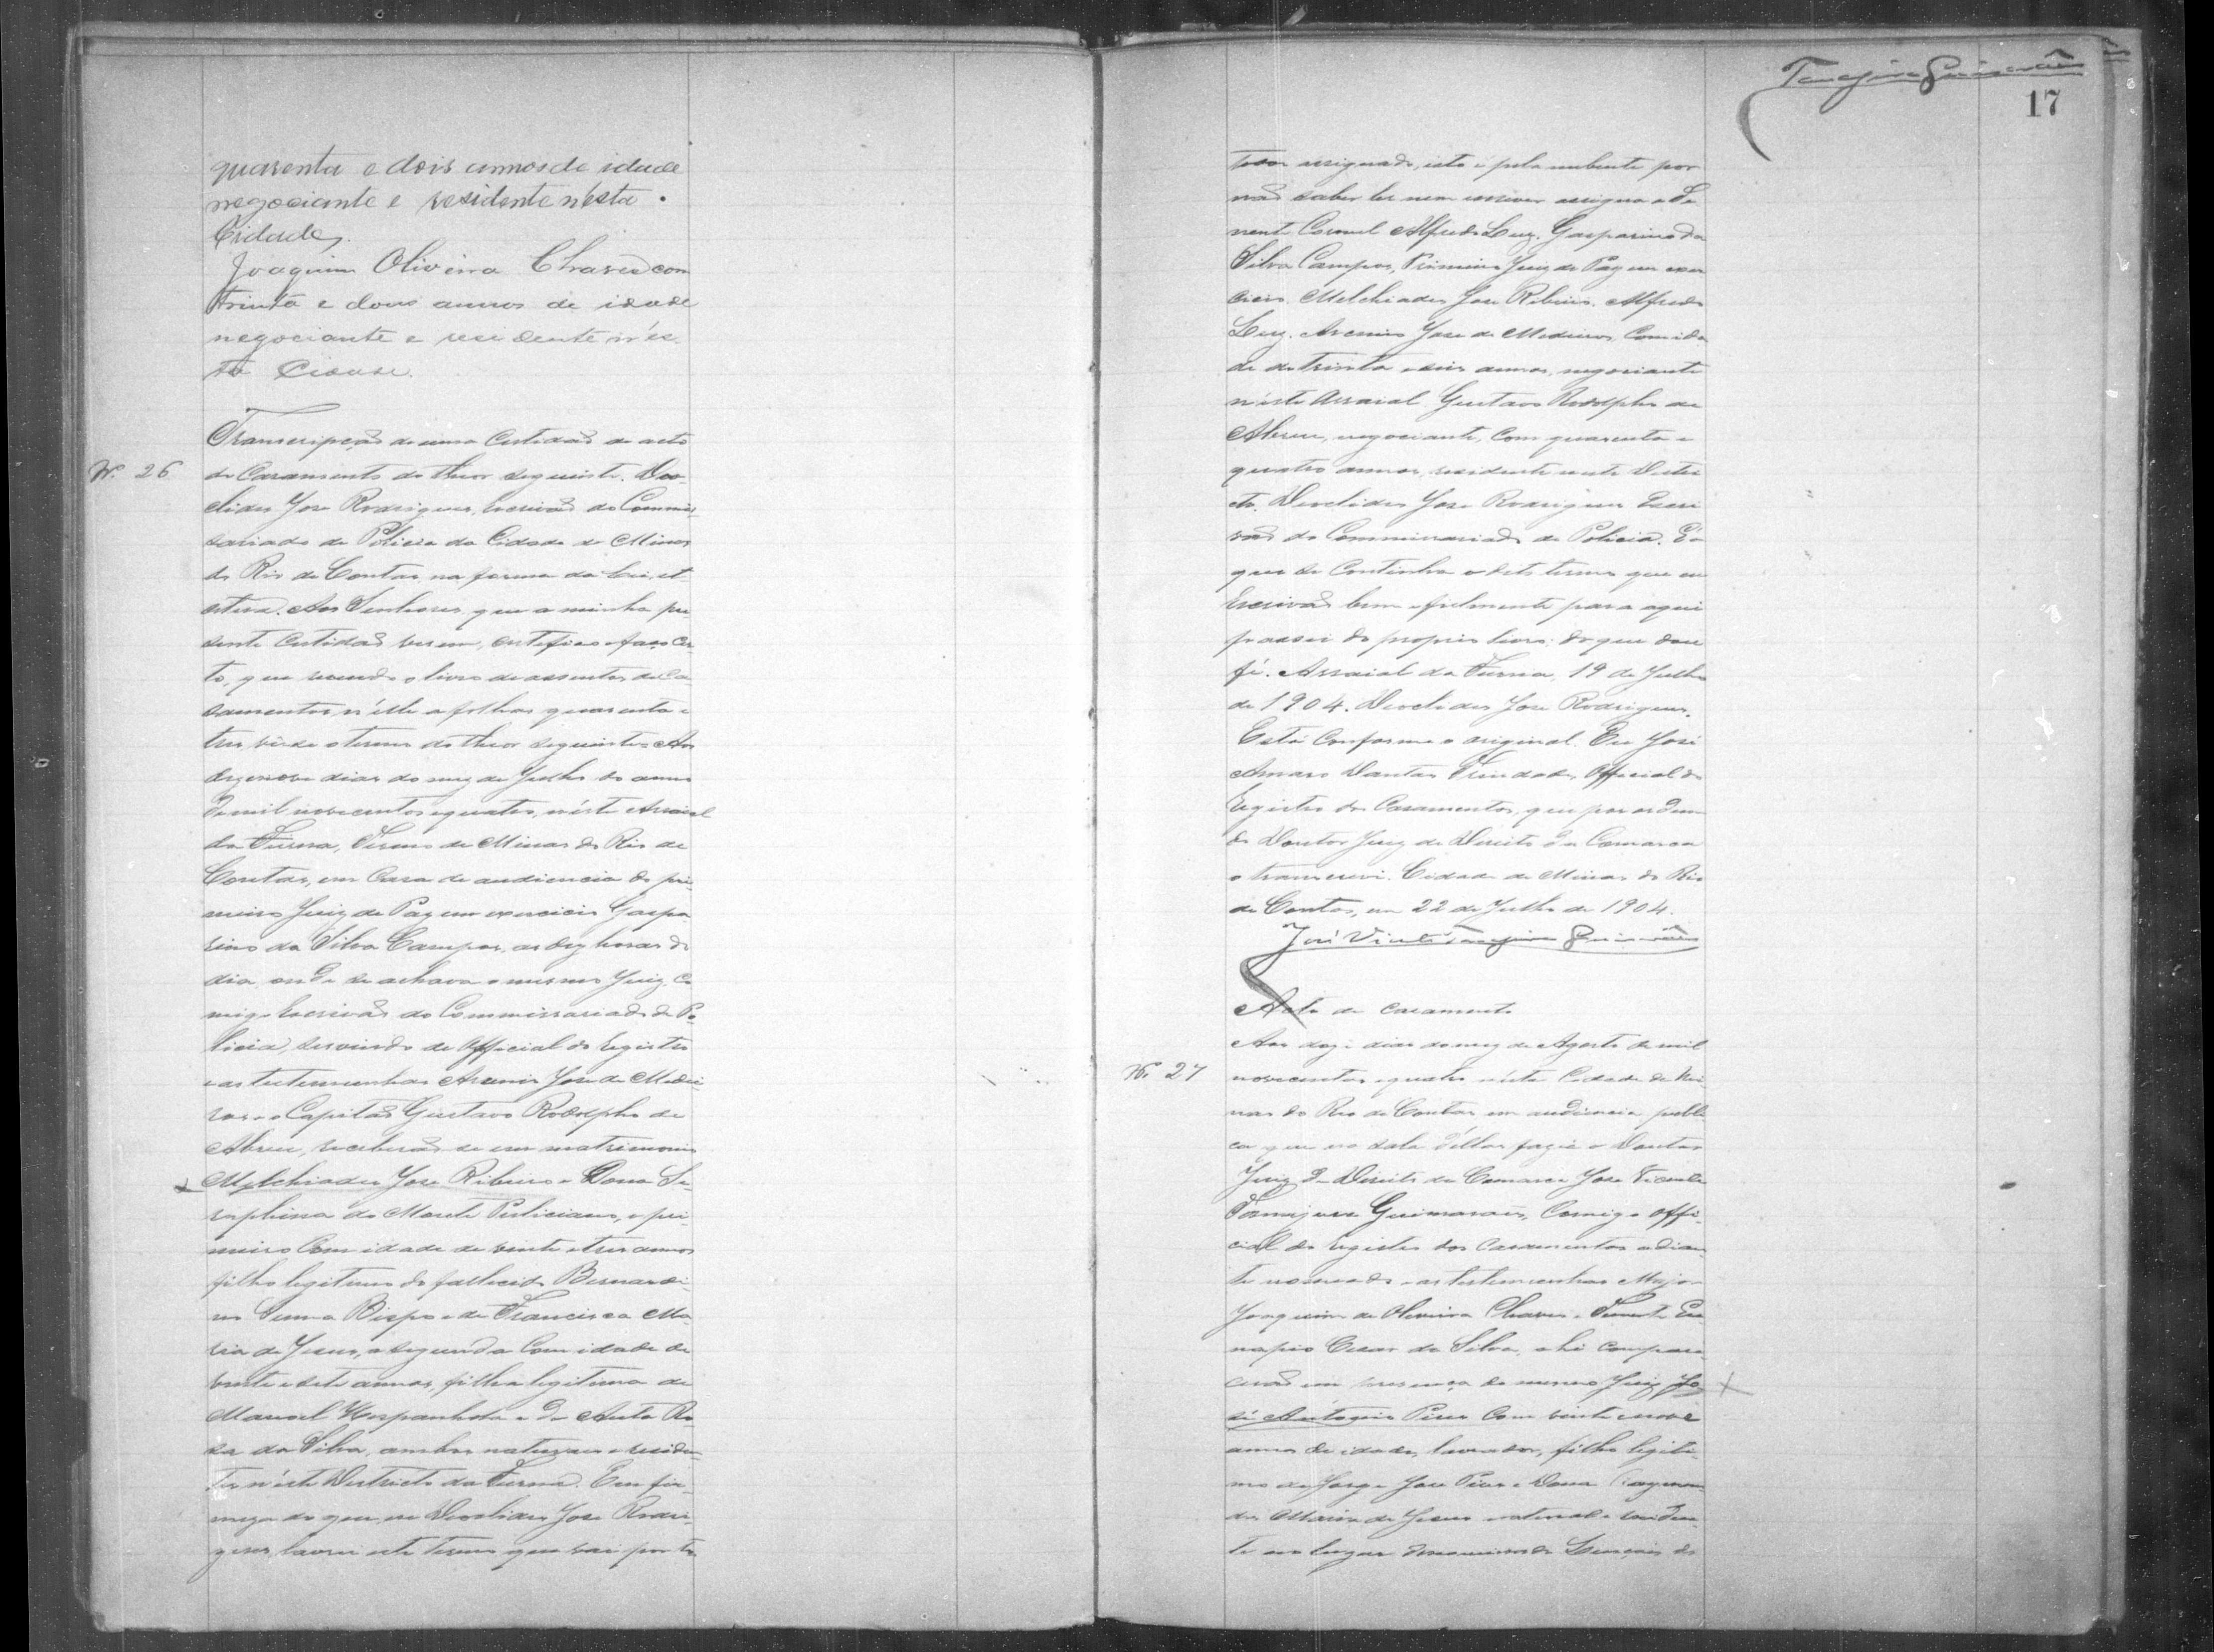 quarenta e dois annos de idade
negociante e residente n'esta
Cidade.
Joaquim Oliveira Chaves com
trinta e dous annos de idade
negociante e residente n'es
ta Cidade.
Nº 26
Transcripção de uma Certidão de acto
de Casamento do theor seguinte. Deo
clides Jose Rodrigues, Escrivão do Commis
sariado de Policia da Cidade de Minas
do Rio de Contas na forma da Lei, et
cetera. Aos Senhores que a minha pre
sente Certidão virem, certifico e faço cer
to, que revendo o livro de assentos de Ca
samentos, n'elle a folhas quarenta e
tres verso o termo do theor seguinte = Aos
dezenove dias do mez de Julho do anno
de mil novecentos e quatro, n'este Arraial
da Furna, Termo de Minas do Rio de
Contas, em Casa de audiencia do pri
meiro Juiz de Paz em exercicio Gaspa
rino da Silva Campos, as dez horas do
dia, onde se achava o mesmo Juiz, Co
migo Escrivão do Commissariado de Po
licia, servindo de Official do Registro
e as testemunhas Arsenio Jose de Medei
ros e o Capitão Gustavo Rodolpho de
Abreu, receberão se em matrimonio
Melchiades Jose Ribeiro e Dona Se
raphina do Monte Feliciano, o pri
meiro Com idade de vinte e tres annos
filho legitimo do fallecido Bernardi
no Senna Bispo e de Francisca Ma
ria de Jesus, a segunda Com idade de
vinte e sete annos, filha legitima de
Manoel Hespanhola e de Anta Ro
sa da Silva, ambos naturaes e residen
tes n'este Districto da Furna. Em fir
meza do que, eu Deoclides Jose Rodri
gues, lavrei este termo que vai por to
Tanajura Guimarães
17
dos assignado, isto é pela nubente por
não saber ler nem escrever assigna o Te
nente Coronel Alfredo Luz. Gasparino da
Silva Campos, Primeiro Juiz de Paz em exer
cicio. Melchiades Jose Ribeiro. Alfredo
Luz. Arsenio Jose de Medeiros, Com ida
de de trinta e seis annos, negociante
n'este Arraial Gustavo Rodolpho de
Abreu, negociante, Com quarenta e
quatro annos, residente neste Distri
cto, Deoclides Jose Rodrigues Escri
vão do Commissariado de Policia. É o
que se Continha o dito termo que eu
Escrivão bem e fielmente para aqui
passei do proprio livro: do que dou
fé. Arraial da Furna, 19 de Julho
de 1904. Deoclides Jose Rodrigues.
Está Conforme o original. Eu José
Amaro Dantas Trindade, Official do
Registro dos Casamentos, que por ordem
do Doutor Juiz de Direito da Comarca
o transcrevi. Cidade de Minas do Rio
de Contas, em 22 de Julho de 1904.
José Vicente Tanajura Guimarães
Acto de casamento
Nº 27
Aos doze dias do mez de Agosto de mil
novecentos e quatro n'esta Cidade de Mi
nas do Rio de Contas, em audiencia publi
ca que na sala d'ellas fazia o Doutor
Juiz de Direito da Comarca Jose Vicente
Tanajura Guimarães, Comigo Offi
cial do Registro dos Casamentos adian
te nomeado e as testemunhas Major
Joaquim de Oliveira Chaves e Tenente Eu
napio Cesar da Silva, ahi compare
cerão em presença do mesmo Juiz Jo
sé Antonio Pires Com vinte e nove
annos de idade, lavrador, filho legiti
mo de Jorge Jose Pires e Dona Raymun
da Maria de Jesus natural e residen
te no lugar denominado Lençóes do